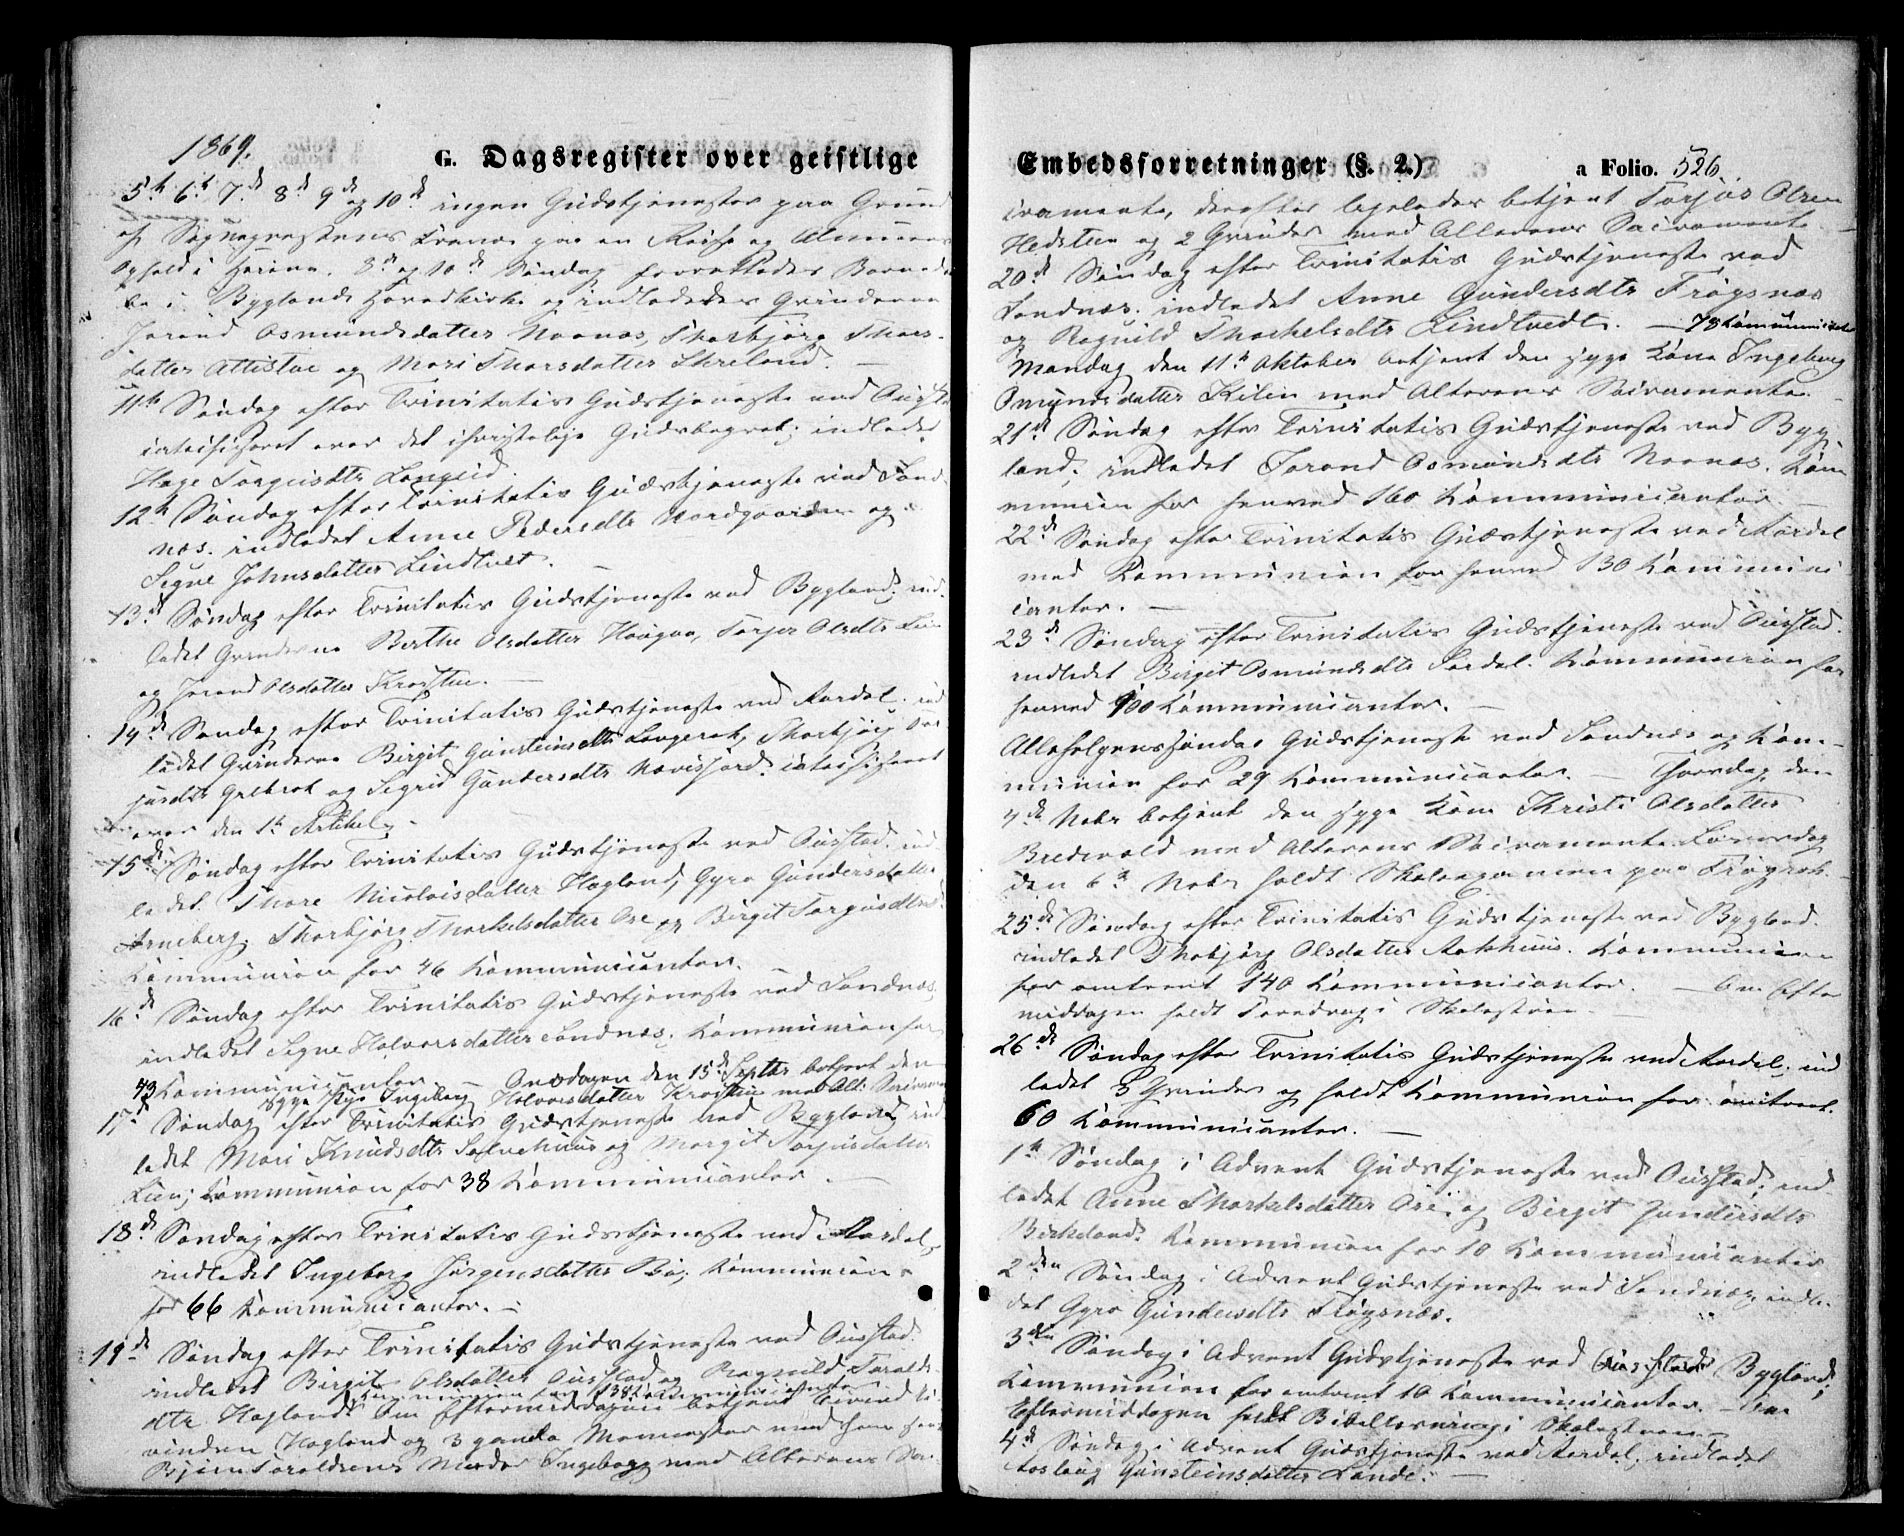 1869.
G. Dagsregister over geistlige
5th 6th 7de 8de 9de og 10de ingen Gudstjenester paa Grund
af Sognepræstens Fravær paa en Reise og
Ophold i 8de og 10de Søndag forrettedes
i Byglands Hovedkirke og indledede Qvinderne
Jorand Osmundsdatter Noanæs, Thorbjørg Thors-
datter Attistøe og Mari Thorsdatter Skreland. —
11th Søndag efter Trinitatis Gudstjeneste ved Austad
catechiseret over det christelige Gudsbegreb; indledet
Hage Torgusdtr Langeid.
12th Søndag efter Trinitatis Gudstjeneste ved Sand-
næs. indledet Anne Pedersdtr Nordgaarden og
Signe Johnsdatter Lindtvet.
13de Søndag efter Trinitatis Gudstjeneste ved Bygland; ind-
ledet Qvinderne Berthe Olsdatter Haugaa, Torjer Olsdtr
og Jorand Olsdatter Frøysten. —
14de Søndag efter Trinitatis Gudstjeneste ved Aardal. ind
ledet Qvinderne Birgit Gunsteinsdtr Langerak, Thorbjørg
Grebrok og Sigrid Gundersdtr Nævisfjord. catechiseret
over den 1te Artikel. —
15de Søndag efter Trinitatis Gudstjeneste ved Austad. ind
ledet Thore Nicolaisdatter Hagland, Gyro Gundersdatter
Arneberg, Thorbjørg Thorkelsdatter Ose og Birgit Torgusdtr
Communion for 46 Communicanter.
16de Søndag efter Trinitatis Gudstjeneste ved Sandnæs,
indledet Signe Halvorsdatter Sandnæs. Communion for
43 Communicanter — Onsdagen den 15de Septbr betjent den
syge Ingeborg Halvorsdatter med Alt. Sacram
17de Søndag efter Trinitatis Gudstjeneste ved Bygland, ind
ledet Mari Knudsdtr Sølvehuus og Margit Torjusdatter
Lien; Communion for 38 Communicanter. —
18de Søndag efter Trinitatis Gudstjeneste ved Aardal,
indledet Ingeborg Jørgensdatter Bø; Communion
for 66 Communicanter. —
19de Søndag efter Trinitatis Gudstjeneste ved Austad.
indledet Birgit Olsdatter Austad og Ragnild Taralds-
Communion for 138 Communicanter
dtr Hagland. Om Eftermiddagen betjent
Hagland og 3 gamle Mennesker ved
Bjørn Taraldsens Moder Ingeborg med Alterens Sa-
Embedsforretninger (§. 2.)
a Folio. 526.
cramente, derefter ligeledes betjent Torjus Olsen
Hedsteen og 2 Qvinder med Alterens Sacramente. —
20de Søndag efter Trinitatis Gudstjeneste ved
Sandnæs. indledet Anne Gundersdtr Frøysnæs
og Ragnild Thorkelsdtr Lindtvedt. — 78 Communicanter
Mandag den 11te Oktober betjent den syge Kone Ingeborg
Omundsdatter Kilen med Alterens Sacramente. —
21de Søndag efter Trinitatis Gudstjeneste ved Byg-
land; indledet Jorand Osmundsdtr Noanæs. Com
munion for henved 160 Communicanter. —
22de Søndag efter Trinitatis Gudstjeneste ved Aardal
med Communion for henved 130 Communi
canter. —
23de Søndag efter Trinitatis Gudstjeneste ved Austad.
indledet Birgit Osmundsdtr Sordal. Communion for
henved 100 Communicanter. —
Allehelgenssøndag Gudstjeneste ved Sandnæs og Com-
munion for 29 Communicanter. — Thorsdag den
4de Nobr betjent den syge Kone Kristi Olsdatter
Bredevold med Alterens Sacramente. Løverdag
den 6te Nobr holdt Skoleexamen paa Frøyrak. —
25de Søndag efter Trinitatis Gudstjeneste ved Bygland.
indledet Thobjørg Olsdatter Aakhuus. Communion
for omtrent 140 Communicanter. — Om Efter
middagen holdt Foredrag i Skolestuen. —
26de Søndag efter Trinitatis Gudstjeneste ved Aardal, ind
ledet 3 Qvinder og holdt Communion for omtrent
60 Communicanter. —
1te Søndag i Advent Gudstjeneste ved Austad; ind-
ledet Anne Thorkelsdatter Ose og Birgit Gundersdtr
Birkeland. Communion for 10 Communicanter
2den Søndag i Advent Gudstjeneste ved Sandnæs, indle-
det Gyro Gundersdtr Frøysnæs.
3die Søndag i Advent Gudstjeneste ved Bygland;
Communion for omtrent 10 Communicanter. — Om
Eftermiddagen holdt Bibellæsning i Skolestuen —
4de Søndag i Advent Gudstjeneste ved Aardal, indledet
Aaslaug Gunsteinsdatter Lande. —